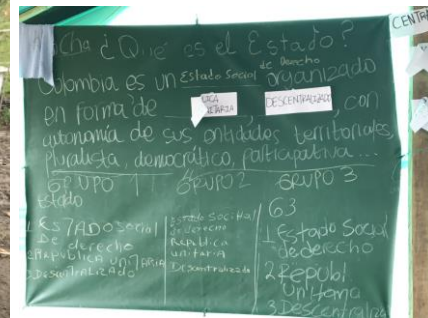 CENTR
Cha ¿Qué es el Estado?
Colombia es un Estado Social de Derecho organizado
en forma de DESCENTRALIZADO, con
autonomía de sus entidades territoriales,
pluralista, democrático, participativa...
GRUPO 1 GRUPO 2 GRUPO 3
Estado
1. ESTADO social
De derecho
2 REPUBLICA UNITARIA
3 DESCENTRALIZADO
Estado Social
de derecho
Republica
unitaria
Descentralizado
G3
1. Estado Social
de derecho
2 Republ
unitama
3 Descentraliza